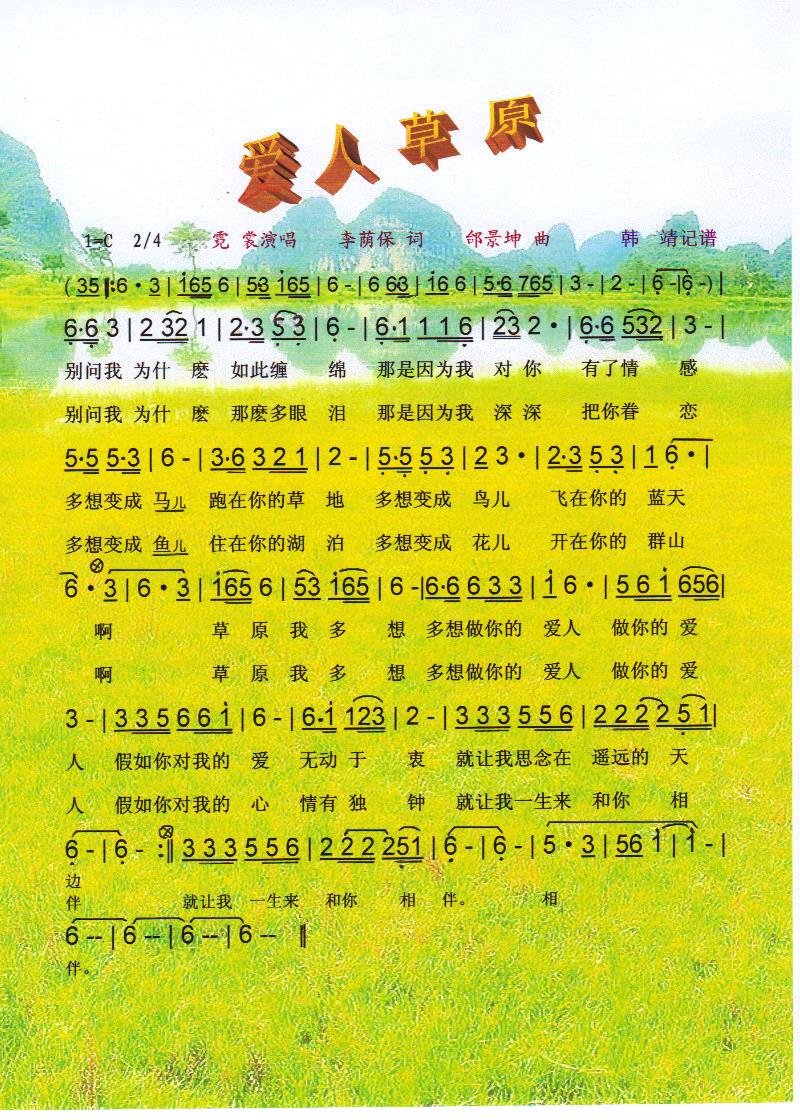 爱人草原
1=C 2/4 霓裳演唱 李荫保 词 邰景坤 曲 韩 靖记谱
( 35 |: 6 · 3 | 165 6 | 53 165 | 6 - | 6 63 | 16 6 | 5·6 765 | 3 - | 2 - | 6 -| 6 -) |
6·6 3 | 2 32 1 | 2·3 5 3 | 6 - | 6·1 1 1 6 | 23 2 · | 6·6 532 | 3 - |
别问我 为什 麽 如此缠 绵 那是因为我 对 你 有了情 感
别问我 为什 麽 那麽多眼 泪 那是因为我 深 深 把你眷 恋
5·5 5·3 | 6 - | 3·6 3 2 1 | 2 - | 5·5 5 3 | 2 3 · | 2·3 5 3 | 1 6 · |
多想变成 马儿 跑在你的草 地 多想变成 鸟儿 飞在你的 蓝天
多想变成 鱼儿 住在你的湖 泊 多想变成 花儿 开在你的 群山
6 · 3 | 6 · 3 | 165 6 | 53 165 | 6 -|6·6 6 3 3 | 1 6 · | 5 6 1 656|
啊 草 原 我 多 想 多想做你的 爱人 做你的 爱
啊 草 原 我 多 想 多想做你的 爱人 做你的 爱
3 - | 3 3 5 6 6 1 | 6 - | 6·1 123 | 2 - | 3 3 3 5 5 6 | 2 2 2 2 5 1|
人 假如你对我的 爱 无动 于 衷 就让我思念在 遥远的 天
人 假如你对我的 心 情有 独 钟 就让我一生来 和你 相
6 - | 6 - :‖ 3 3 3 5 5 6 | 2 2 2 251 | 6 - | 6 - | 5 · 3 | 56 1 | 1 - |
边
伴 就让我 一生来 和你 相 伴。 相
6 -- | 6 -- | 6 -- | 6 -- ‖
伴。